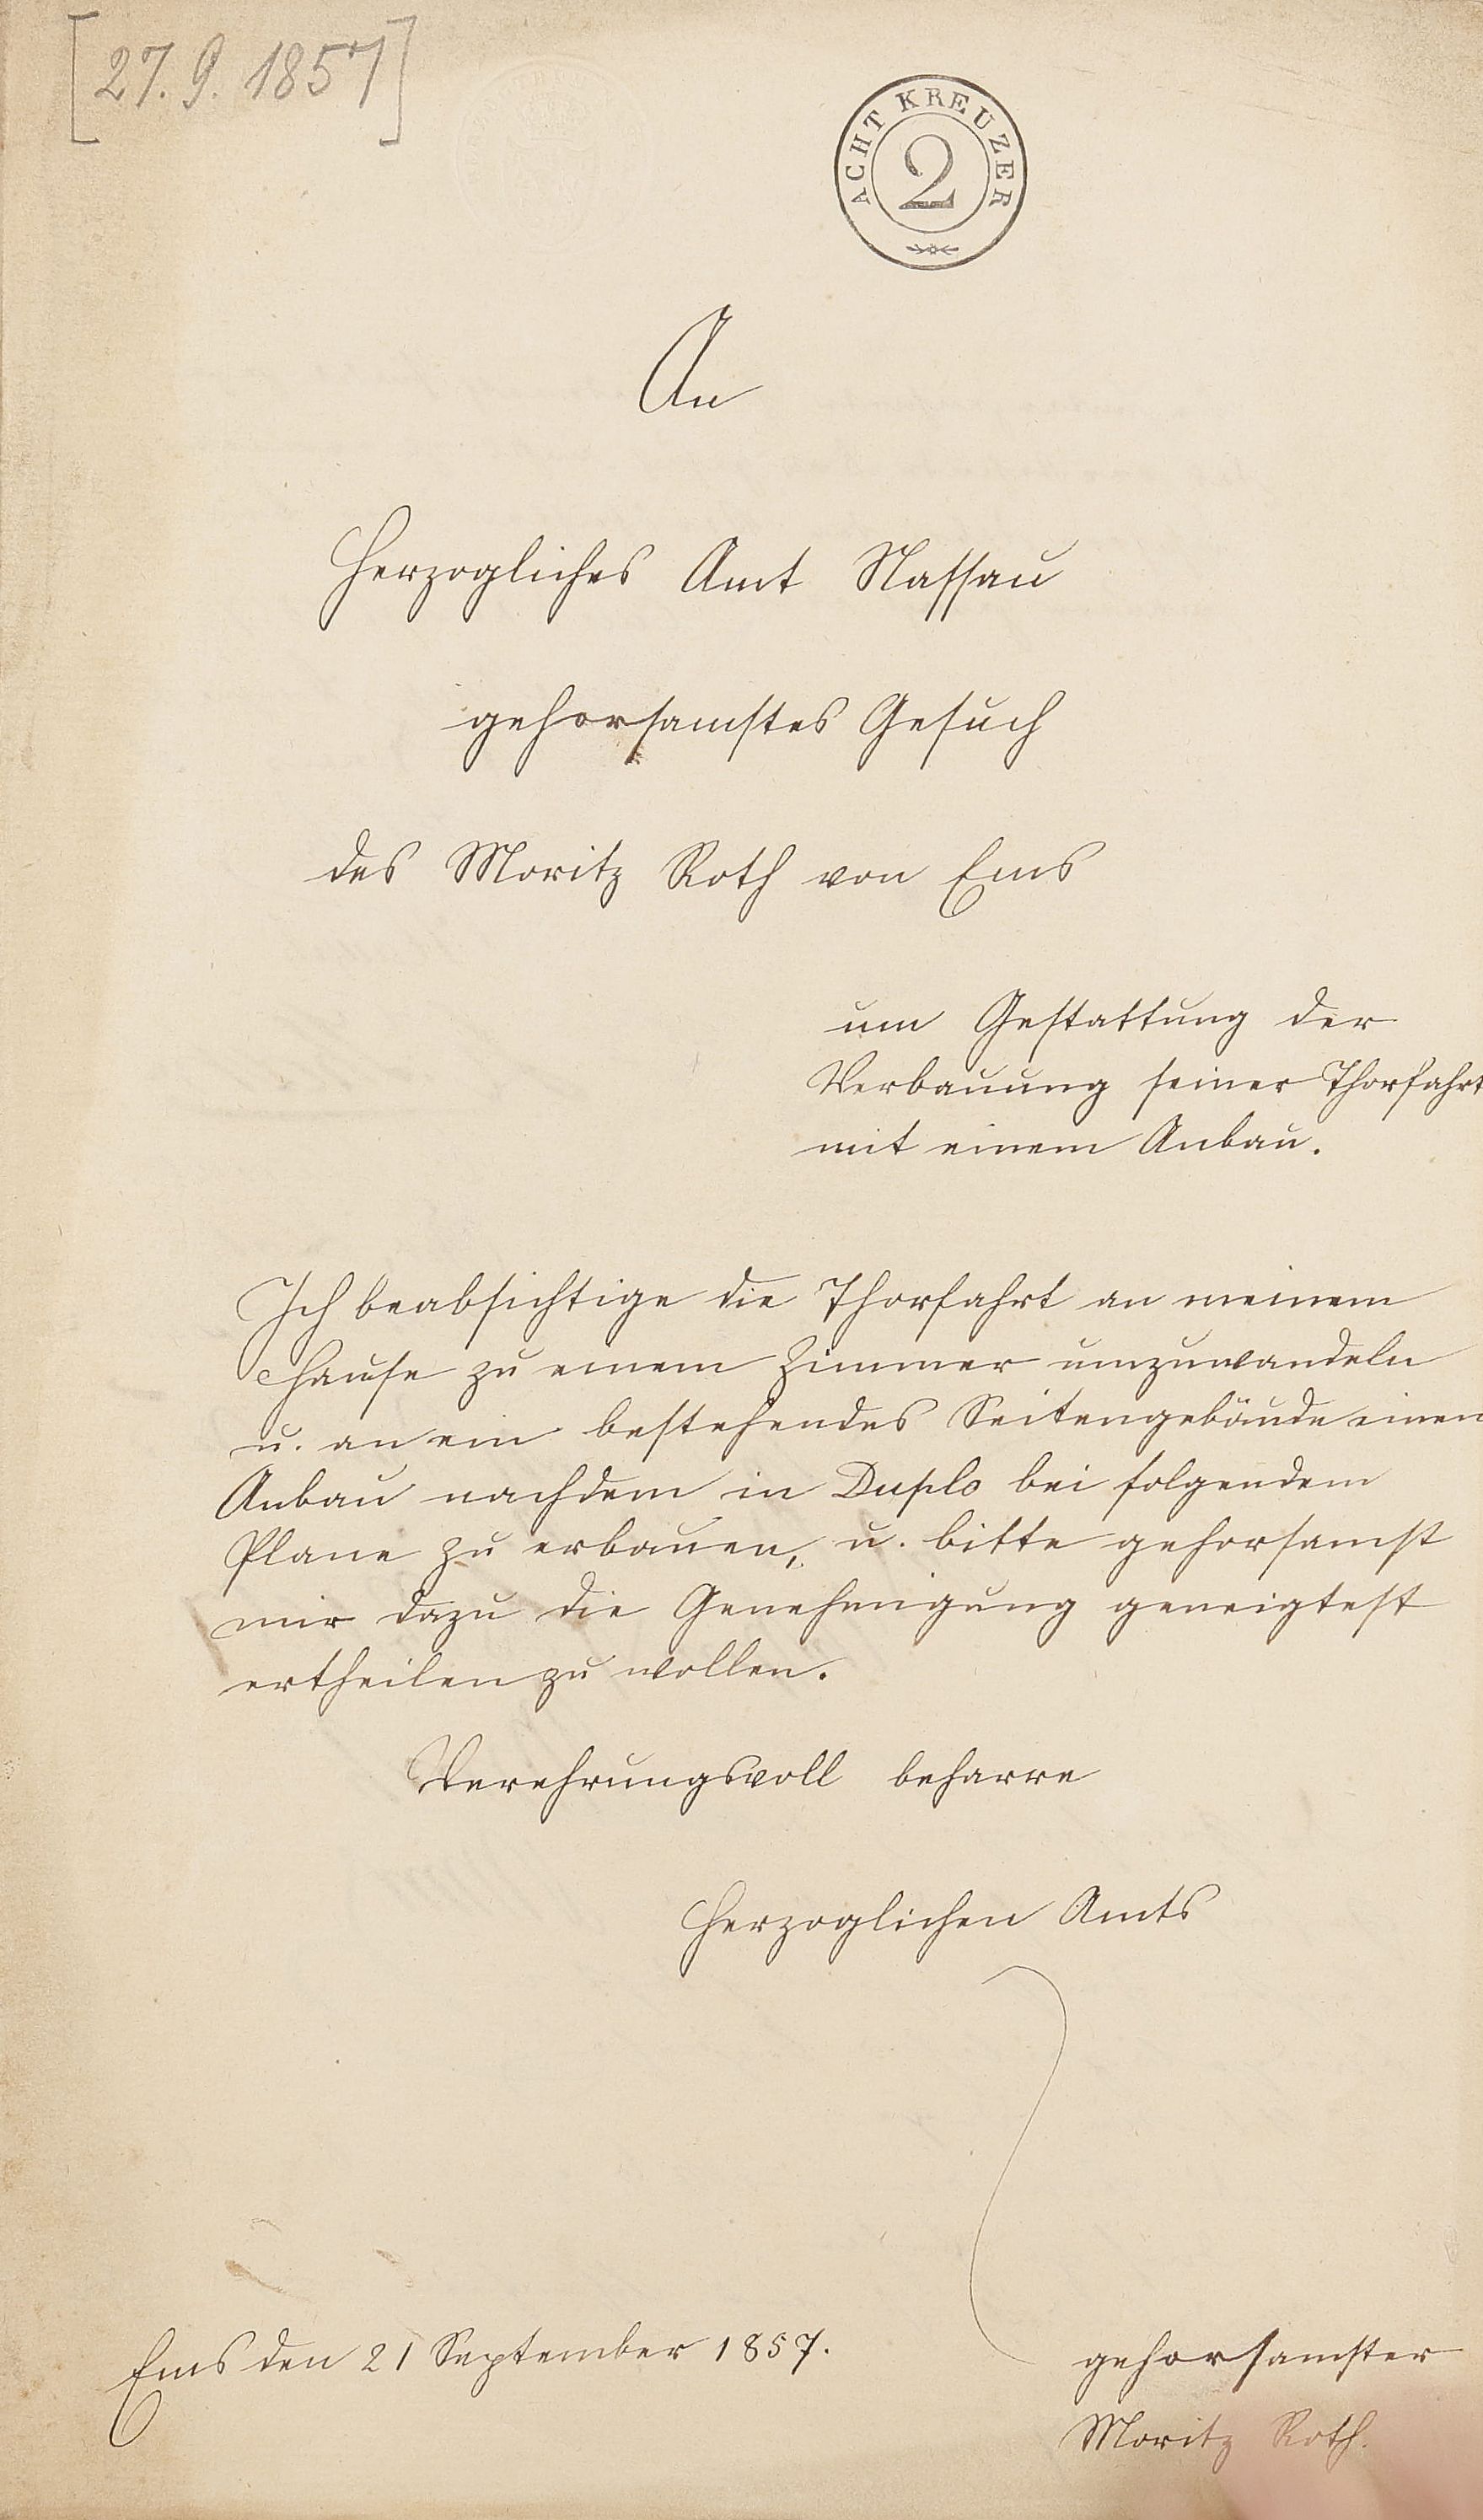 [27. 9. 1857]
ACHT KREUZER
2
An
Herzogliches Amt Nassau
gehorsamstes Gesuch
des Moritz Roth von Ems
um Gestattung der
Verbauung seiner Thorfahrt
mit einem Anbau.
Ich beabsichtige die Thorfahrt an meinem
Hause zu einem Zimmer umzuwandeln
u. an ein bestehendes Seitengebäude einen
Anbau nachdem in Duplo bei folgendem
Plane zu erbauen, u. bitte gehorsamst
mir dazu die Genehmigung geneigtest
ertheilen zu wollen.
Verehrungsvoll beharre
Herzoglichen Amts
Ems den 21 September 1857.
gehorsamster
Moritz Roth.